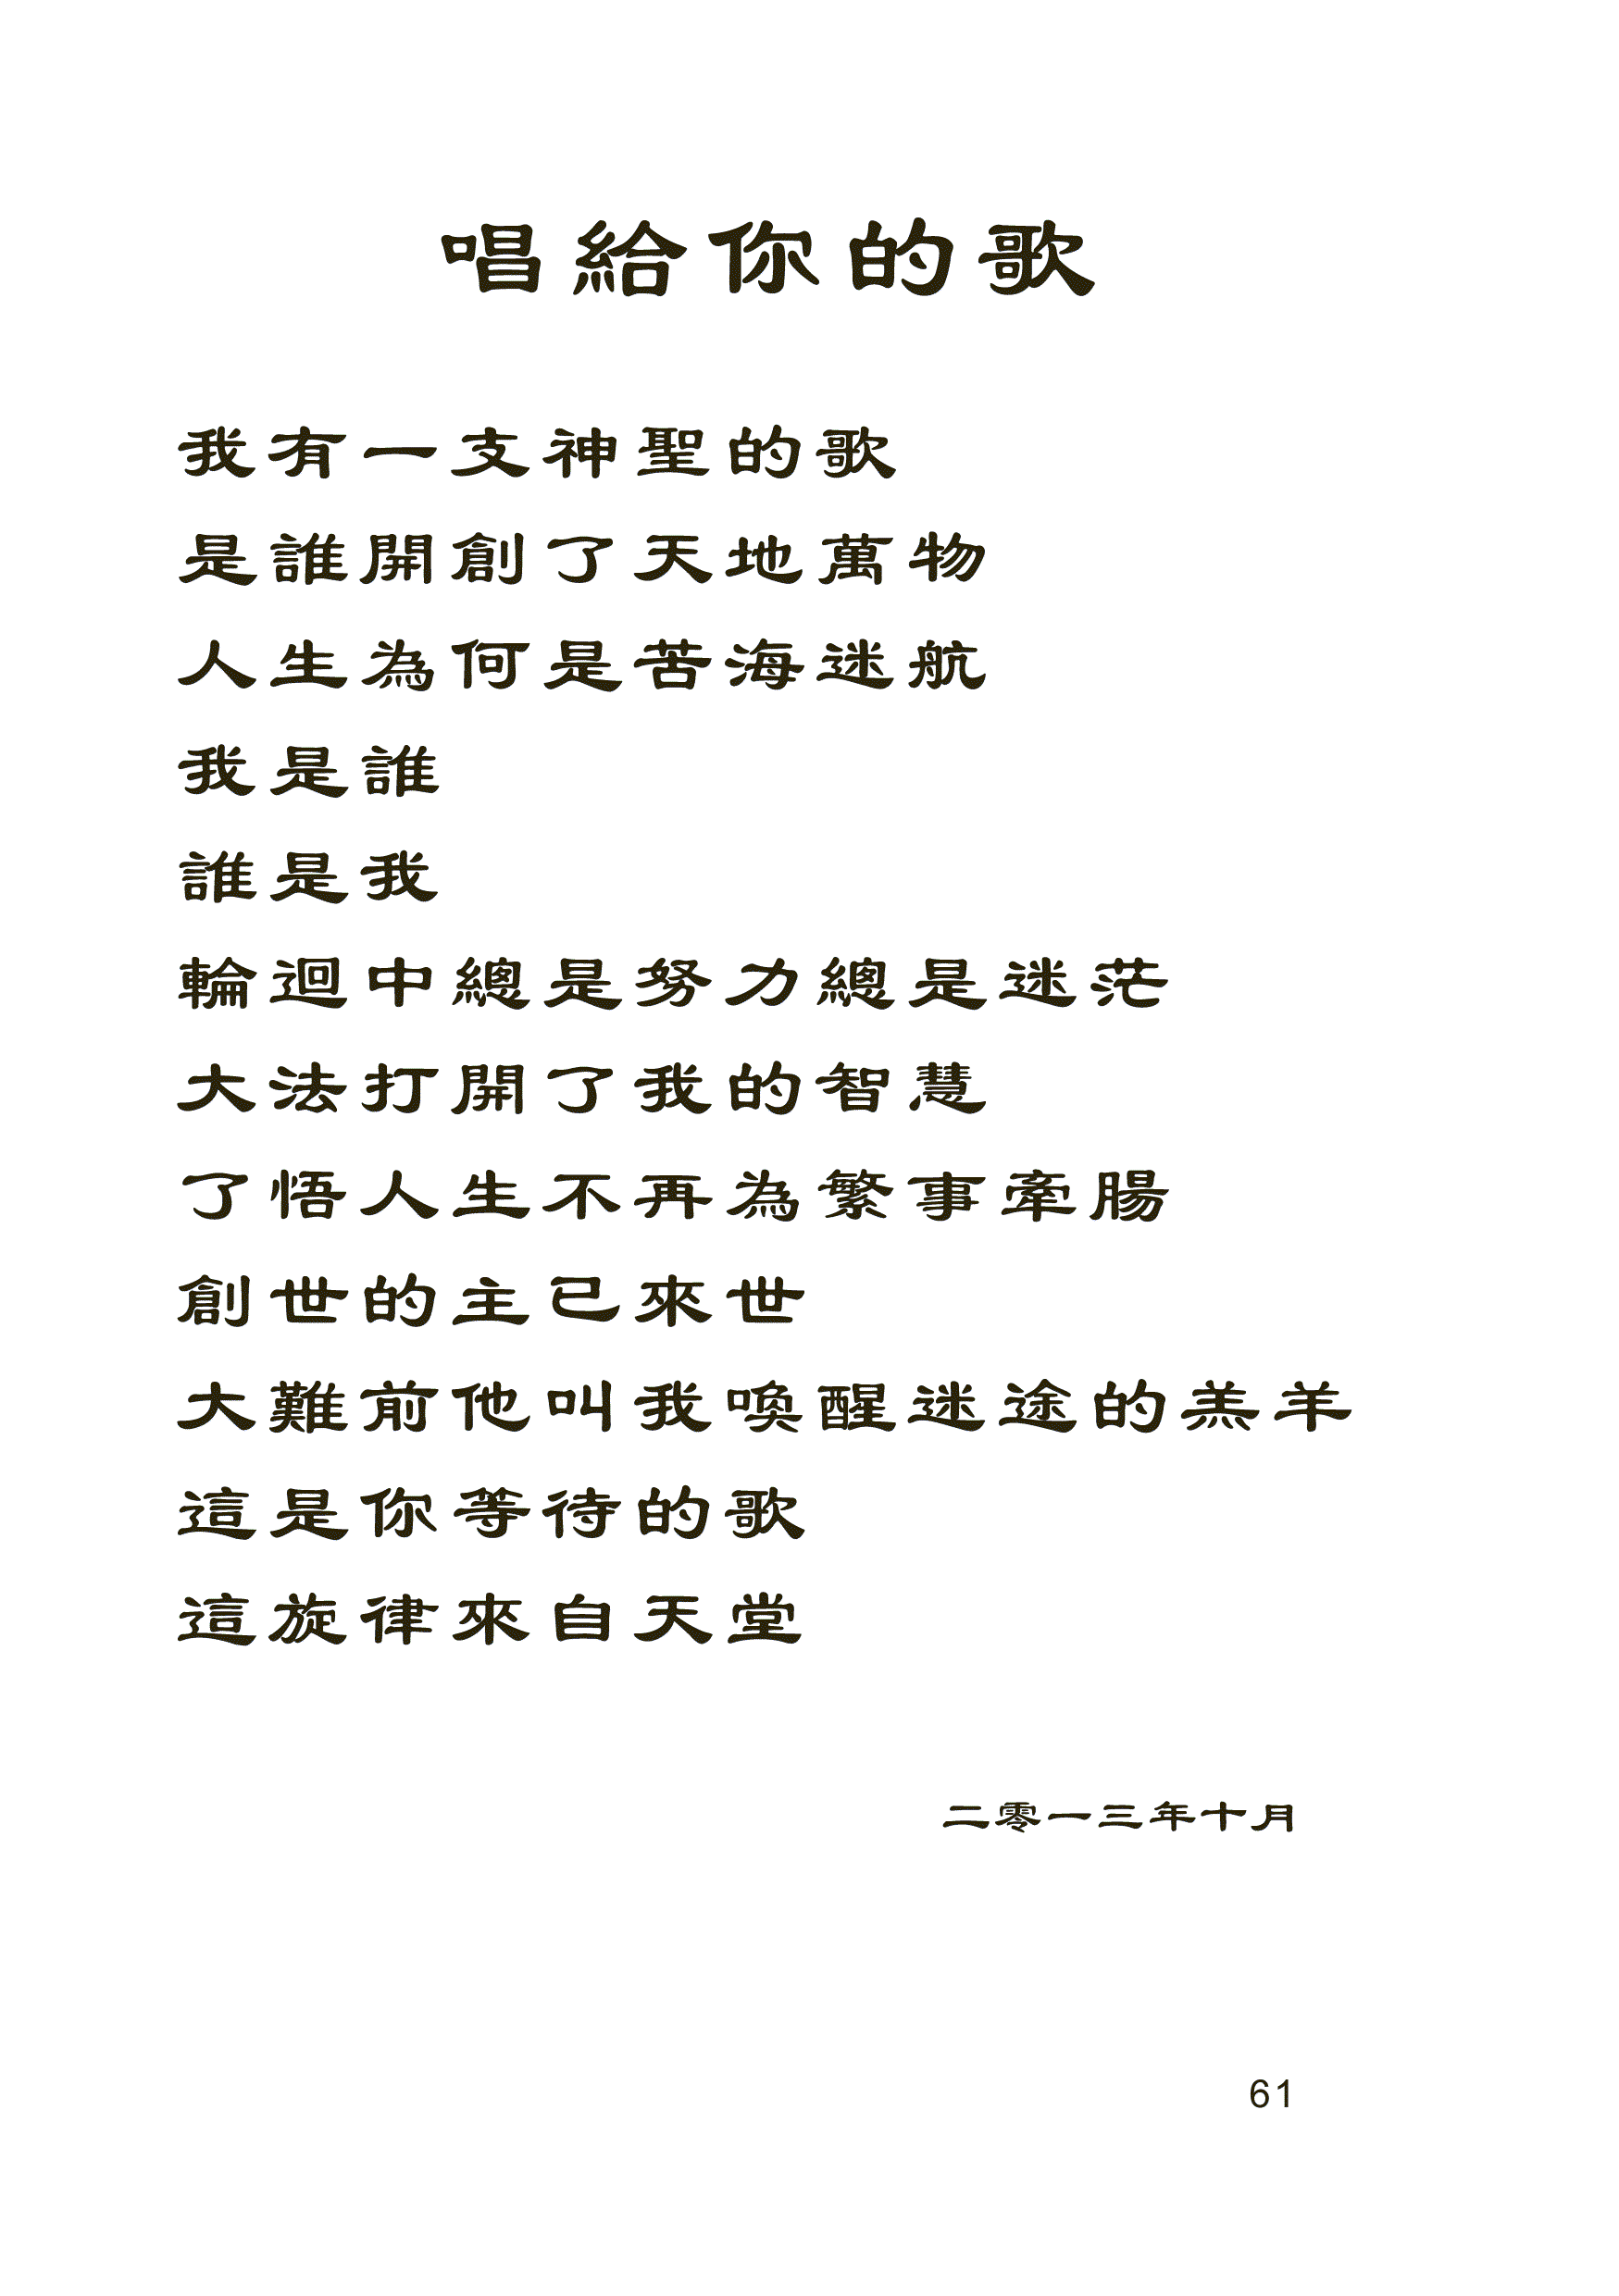 唱給你的歌
我有一支神聖的歌
是誰開創了天地萬物
人生為何是苦海迷航
我是誰
誰是我
輪迴中總是努力總是迷茫
大法打開了我的智慧
了悟人生不再為繁事牽腸
創世的主已來世
大難前他叫我喚醒迷途的羔羊
這是你等待的歌
這旋律來自天堂
二零一三年十月
61